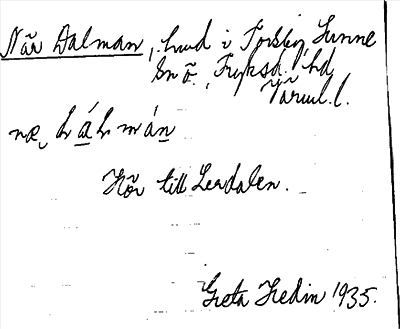 När Dalman, hmd i Torsby, Sunne
sn ö., Fryksd. hd
Värml. l.
Hör till Lerdalen.
Greta Hedin 1935.